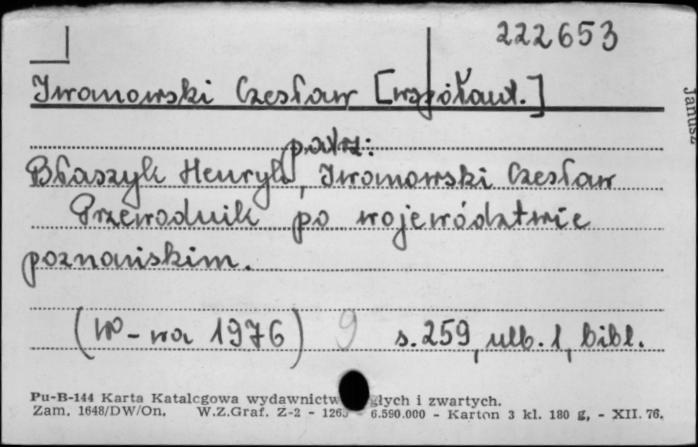 222653
Iwanowski Czesław [współaut.]
patrz:
Błaszyk Henryk, Iwanowski Czesław
Przewodnik po województwie
poznańskim.
(W-wa 1976) 9 s. 259, ulb. 1, bibl.
Pu-B-144 Karta Katalogowa wydawnictw głych i zwartych.
Zam. 1648/DW/On. W.Z.Graf. Z-2 - 1265 6.590.000 - Karton 3 kl. 180 g, - XII. 76.
Janusz